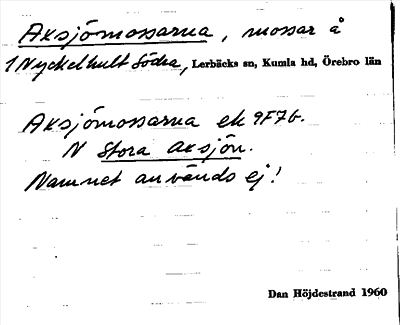 Aksjömossarna, mossar å
1 Nyckelhult Södra, Lerbäcks sn, Kumla hd, Örebro län
Aksjömossarna ek 9F7b.
N Stora Aksjön.
Namnet används ej!
Dan Höjdestrand 1960